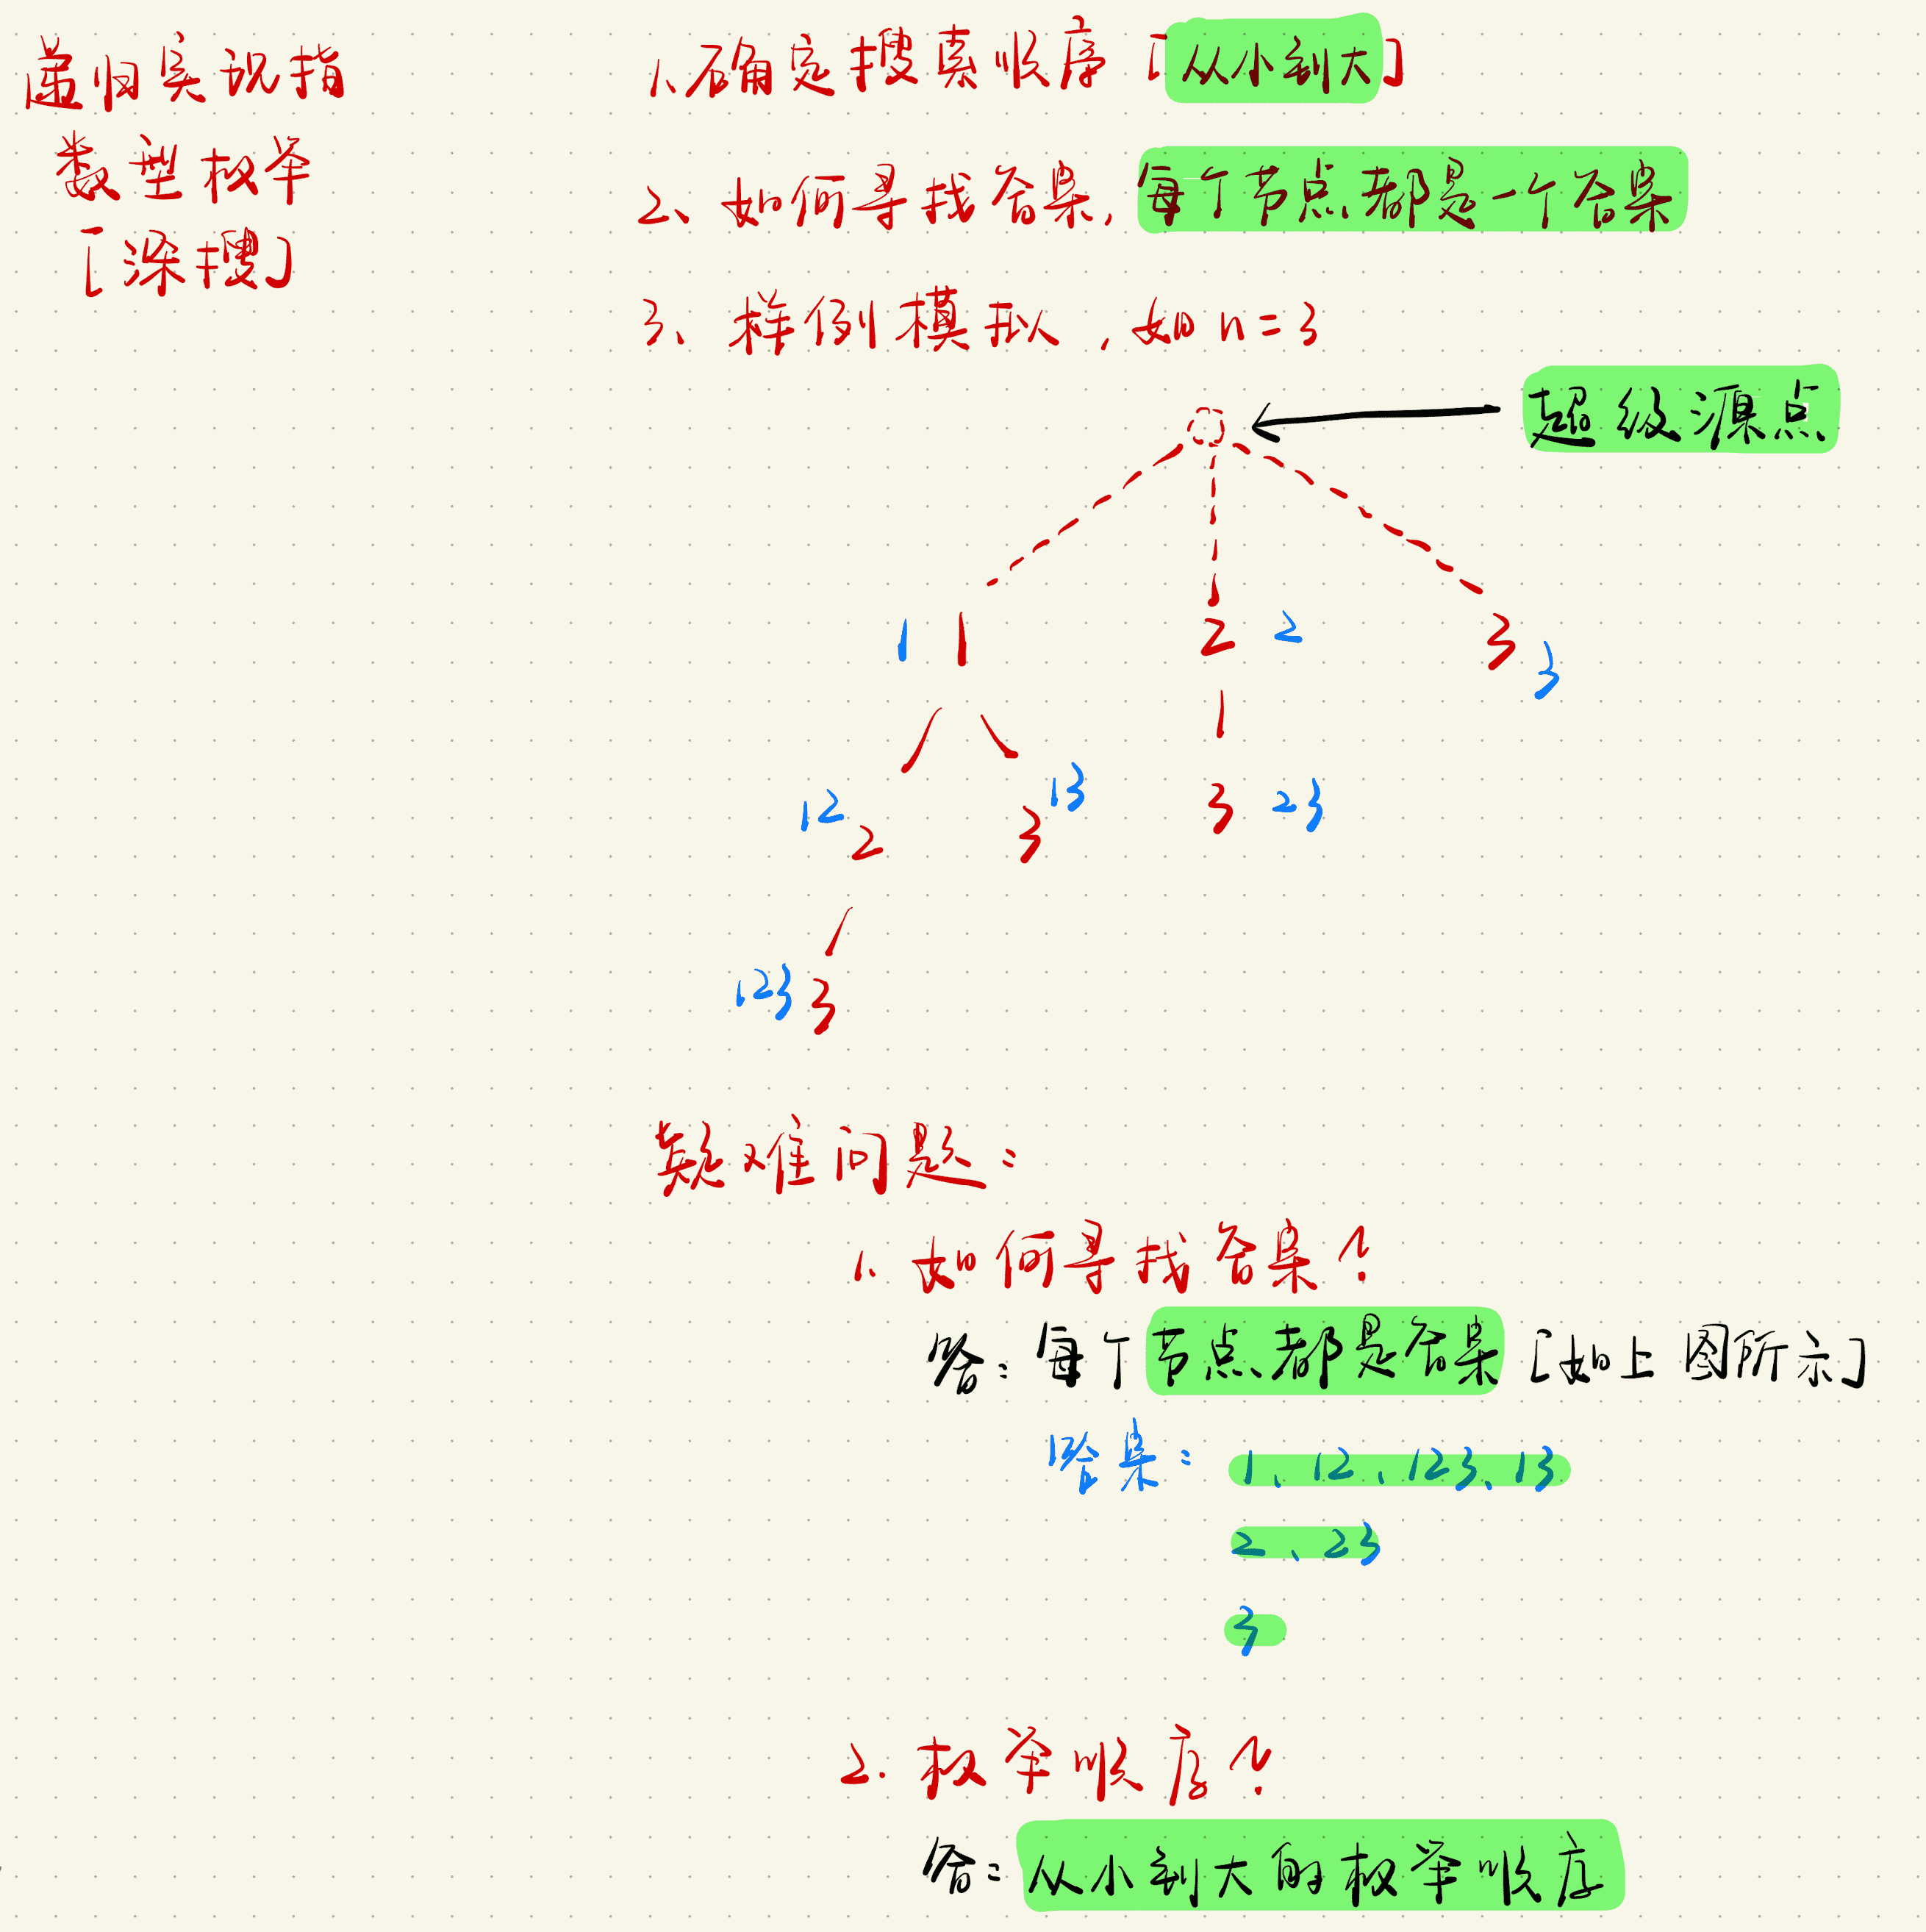 递归实现指
数型枚举
[深搜]
1、确定搜索顺序[从小到大]
2、如何寻找答案,每个节点都是一个答案
3、样例模拟,如n=3
超级源点
1 1 2 2 3 3
12 2 3 13 3 23
123 3
疑难问题:
1、如何寻找答案?
答:每个节点都是答案[如上图所示]
答案:1、12、123、13
2、23
3
2.枚举顺序?
答:从小到大的枚举顺序